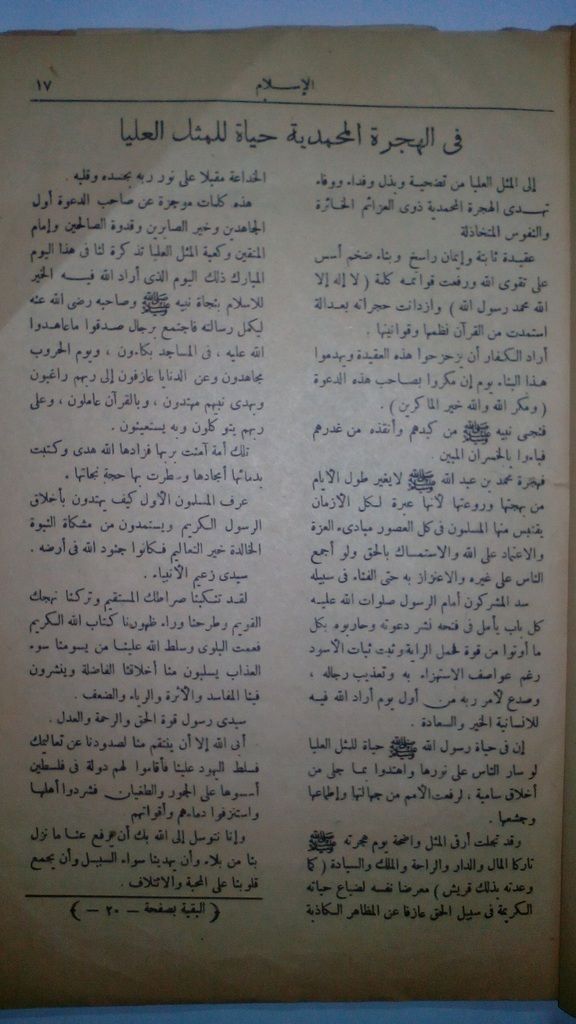 الإسلام
١٧
فى الهجرة المحمدية حياة للمثل العليا
إلى المثل العليا من تضحية وبذل وفداء ووفاء
تهدى الهجرة المحمدية ذوى العزائم الخائرة
والنفوس المتخاذلة
عقيدة ثابتة وإيمان راسخ وبناء ضخم أسس
على تقوى الله ورفعت قوائمه كلمة ( لا إله إلا
الله محمد رسول الله ) وازدانت حجراته بعدالة
استمدت من القرآن نظمها وقوانينها .
أراد الكفار أن يزحزحوا هذه العقيدة ويهدموا
هذا البناء يوم إن مكروا بصاحب هذه الدعوة
( ومكر الله والله خير الماكرين ) .
فنجى نبيه ﷺ من كيدهم وأنقذه من غدرهم
فباءوا بالخسران المبين .
فهجرة محمد بن عبد الله ﷺ لايغير طول الأيام
من بهجتها وروعتها لأنها عبرة لكل الأزمان
يقتبس منها المسلمون فى كل العصور مبادىء العزة
والاعتماد على الله والاستمساك بالحق ولو أجمع
الناس على غيره والاعتزاز به حتى الفناء فى سبيله
سد المشركون أمام الرسول صلوات الله عليه
كل باب يأمل فى فتحه لنشر دعوته وحاربوه بكل
ما أوتوا من قوة فحمل الراية وثبت ثبات الأسود
رغم عواصف الاستهزاء به وتعذيب رجاله ،
وصدع لأمر ربه من أول يوم أراد الله فيه
للانسانية الخير والسعادة .
إن فى حياة رسول الله ﷺ حياة للمثل العليا
لو سار الناس على نورها واهتدوا بما جلى من
أخلاق سامية ، لرفعت الأمم من جهالتها وإطماعها
وجشعها .
وقد تجلت أرقى المثل واضحة يوم هجرته ﷺ
تاركا المال والدار والراحة والملك والسيادة ( كما
وعدته بذلك قريش ) معرضا نفسه لضياع حياته
الكريمة فى سبيل الحق عازفا عن المظاهر الكاذبة
الخداعة مقبلا على نور ربه بجسده وقلبه .
هذه كلمات موجزة عن صاحب الدعوة أول
المجاهدين وخير الصابرين وقدوة الصالحين وإمام
المتقين وكعبة المثل العليا تذكرة لنا فى هذا اليوم
المبارك ذلك اليوم الذى أراد الله فيه الخير
للاسلام بنجاة نبيه ﷺ وصاحبه رضى الله عنه
ليكمل رسالته فاجتمع برجال صدقوا ماعاهدوا
الله عليه ، فى المساجد بكاءون ، ويوم الحروب
مجاهدون وعن الدنايا عازفون إلى ربهم راغبون
وبهدى نبيهم مهتدون ، وبالقرآن عاملون ، وعلى
ربهم يتوكلون وبه يستعينون .
تلك أمة آمنت بربها فزادها الله هدى وكتبت
بدمائها أمجادها وسطرت بها حجة نجاتها .
عرف المسلمون الأول كيف يهتدون بأخلاق
الرسول الكريم ويستمدون من مشكاة النبوة
الخالدة خير التعاليم فكانوا جنود الله فى أرضه .
سيدى زعيم الأنبياء .
لقد تنكبنا صراطك المستقيم وتركنا نهجك
القويم وطرحنا وراء ظهورنا كتاب الله الكريم
فعمت البلوى وسلط الله علينا من يسومنا سوء
العذاب يسلبون منا أخلاقنا الفاضلة وينشرون
فينا المفاسد والأثرة والرياء والضعف .
سيدى رسول قوة الحق والرحمة والعدل .
أبى الله إلا أن ينتقم منا لصدودنا عن تعاليمك
فسلط اليهود علينا فأقاموا لهم دولة فى فلسطين
أسسوها على الجور والطغيان فشردوا أهلها
واستنزفوا دماءهم وأقواتهم
وإنا نتوسل إلى الله بك أن يرفع عنا ما نزل
بنا من بلاء وأن يهدينا سواء السبيل وأن يجمع
قلوبنا على المحبة والائتلاف .
( البقية بصفحة — ٢٠ — )